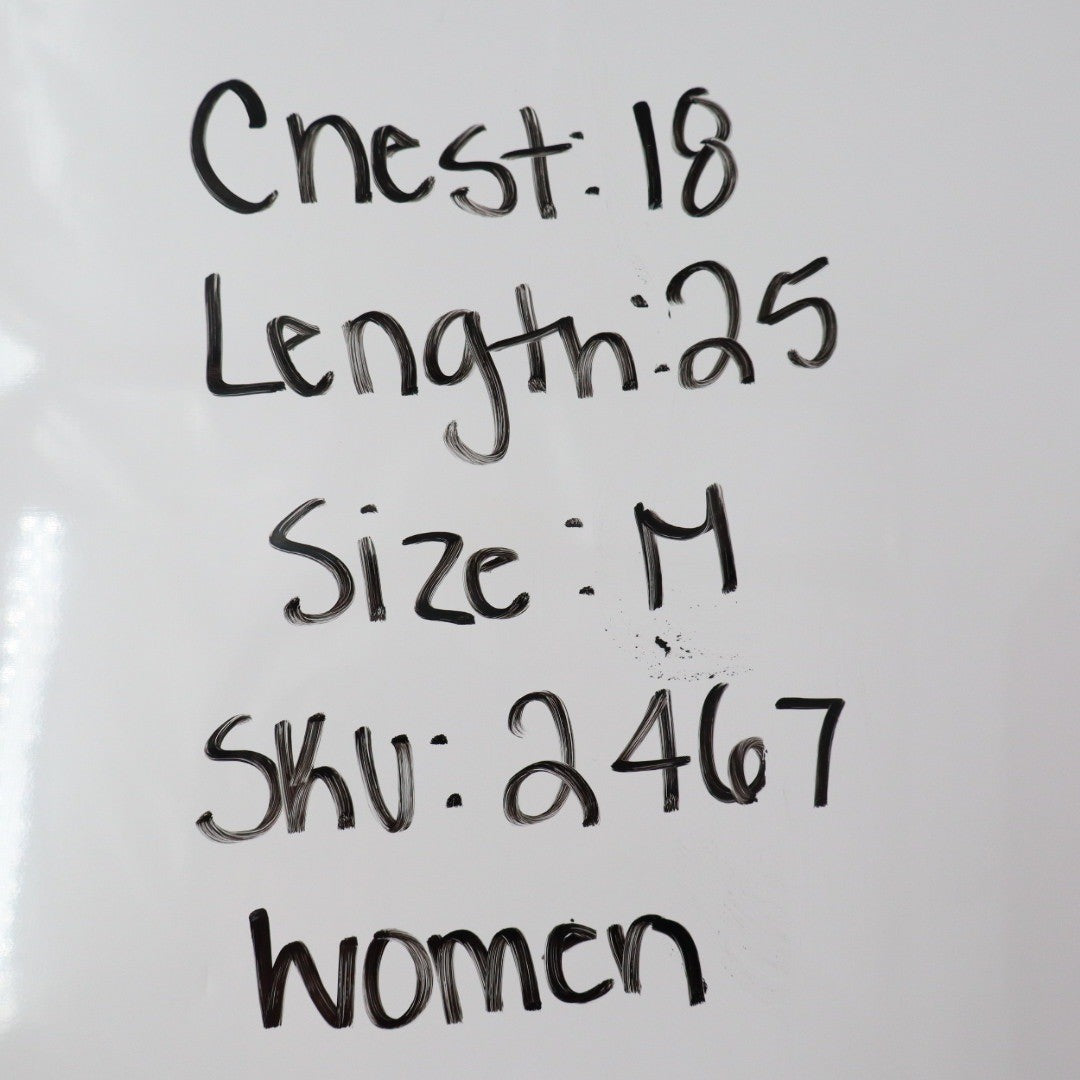 Chest: 18
Length: 25
Size: M
SKU: 2467
Women